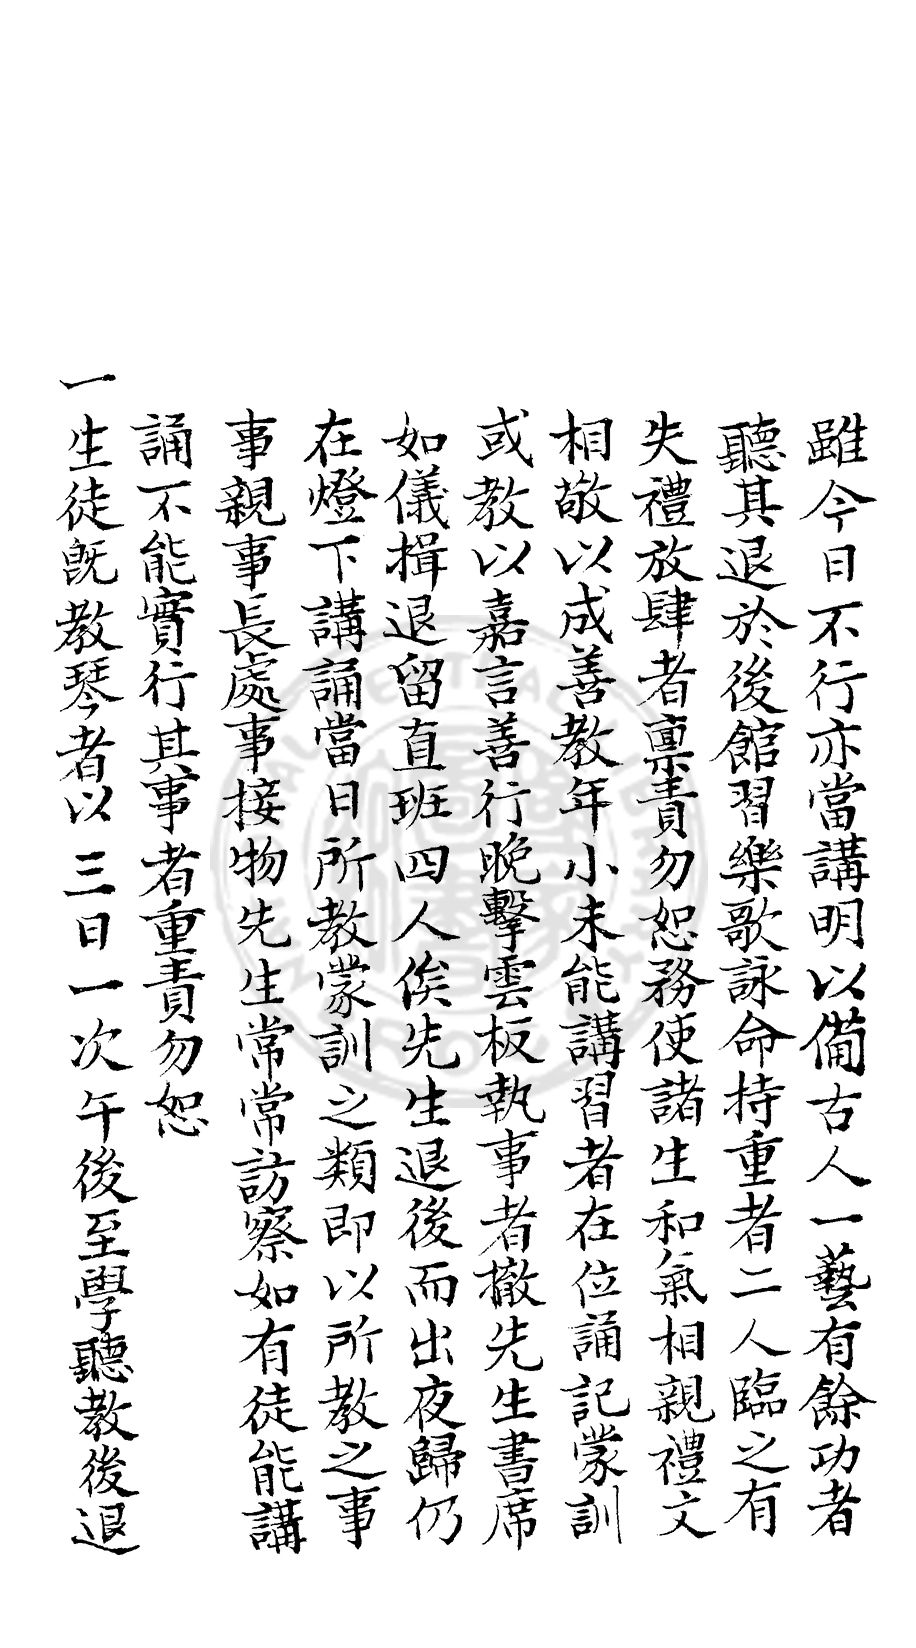 雖今日不行亦當講明以備古人一藝有餘功者
聽其退於後館習樂歌詠命持重者二人臨之有
失禮放肆者稟責勿恕務使諸生和氣相親禮文
相敬以成善教年小未能講習者在位誦記蒙訓
或教以嘉言善行晚擊雲板執事者撤先生書席
如儀揖退留直班四人俟先生退後而出夜歸仍
在燈下講誦當日所教蒙訓之類即以所教之事
事親事長處事接物先生常常訪察如有徒能講
誦不能實行其事者重責勿恕
一生徒既教琴者以三日一次午後至學聽教後退